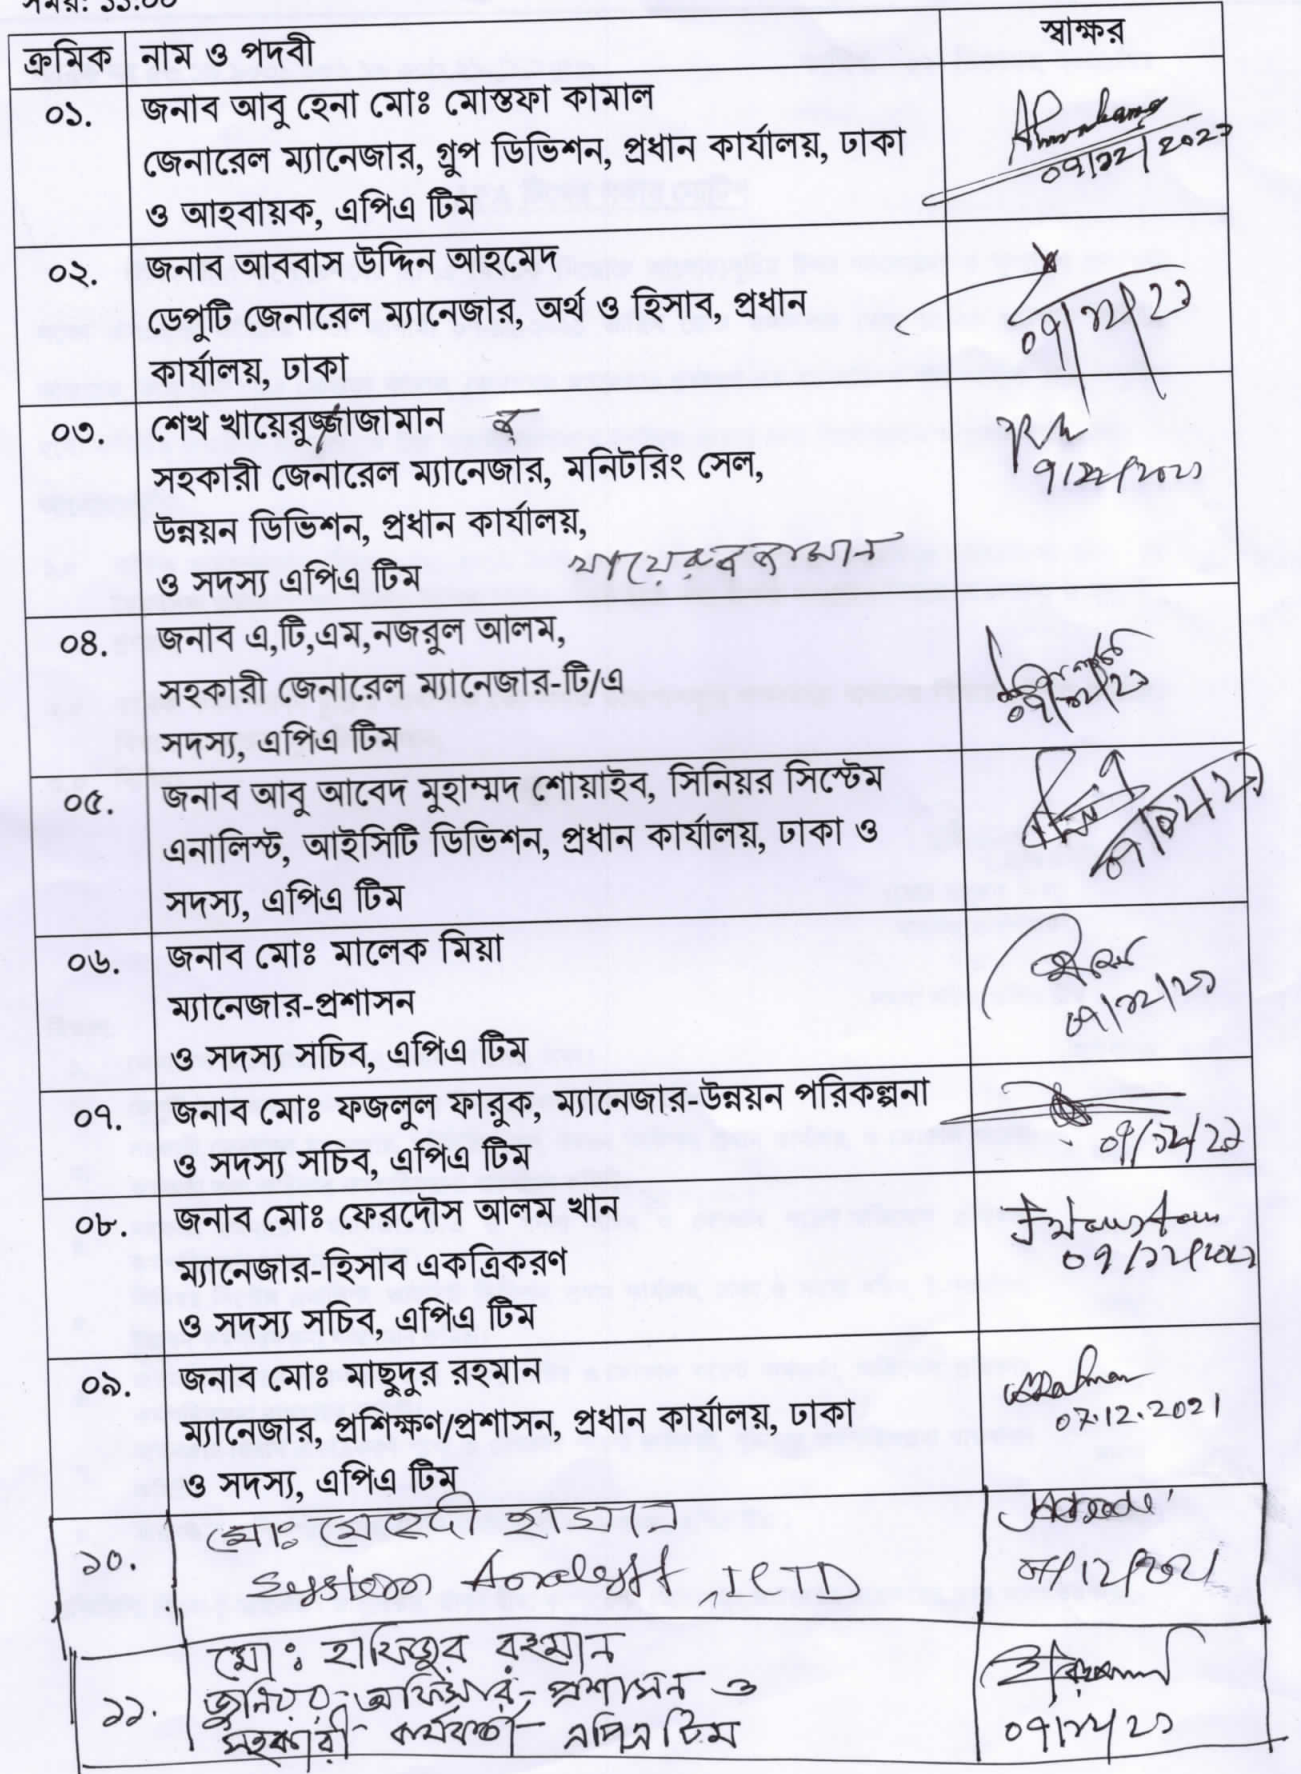 সময়: ১১:০০
ক্রমিক নাম ও পদবী স্বাক্ষর
০১. জনাব আবু হেনা মোঃ মোস্তফা কামাল
জেনারেল ম্যানেজার, গ্রুপ ডিভিশন, প্রধান কার্যালয়, ঢাকা
ও আহবায়ক, এপিএ টিম
০৭/১২/২০২১
০২. জনাব আববাস উদ্দিন আহমেদ
ডেপুটি জেনারেল ম্যানেজার, অর্থ ও হিসাব, প্রধান
কার্যালয়, ঢাকা
০৭/১২/২১
০৩. শেখ খায়েরুজ্জাজামান
সহকারী জেনারেল ম্যানেজার, মনিটরিং সেল,
৭/১২/২০২১
উন্নয়ন ডিভিশন, প্রধান কার্যালয়,
ও সদস্য এপিএ টিম
০৪. জনাব এ,টি,এম,নজরুল আলম,
সহকারী জেনারেল ম্যানেজার-টি/এ
০৭/১২/২১
সদস্য, এপিএ টিম
০৫. জনাব আবু আবেদ মুহাম্মদ শোয়াইব, সিনিয়র সিস্টেম
এনালিস্ট, আইসিটি ডিভিশন, প্রধান কার্যালয়, ঢাকা ও
০৭/১২/২১
সদস্য, এপিএ টিম
০৬. জনাব মোঃ মালেক মিয়া
ম্যানেজার-প্রশাসন
০৭/১২/২১
ও সদস্য সচিব, এপিএ টিম
০৭. জনাব মোঃ ফজলুল ফারুক, ম্যানেজার-উন্নয়ন পরিকল্পনা
ও সদস্য সচিব, এপিএ টিম
০৭/১২/২১
০৮. জনাব মোঃ ফেরদৌস আলম খান
ম্যানেজার-হিসাব একত্রিকরণ
০৭/১২/২০২১
ও সদস্য সচিব, এপিএ টিম
০৯. জনাব মোঃ মাছুদুর রহমান
ম্যানেজার, প্রশিক্ষণ/প্রশাসন, প্রধান কার্যালয়, ঢাকা
07.12.2021
ও সদস্য, এপিএ টিম
১০. মোঃ মেহেদী হাসান
System Analyst, ICTD
07/12/2021
১১. মোঃ হাফিজুর রহমান
জুনিয়র অফিসার-প্রশাসন ও
সহকারী কর্মকর্তা এপিএ টিম
০৭/১২/২১